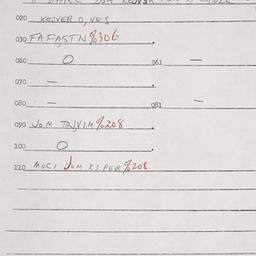 020 KEJVER O, VES
030 FAFASTN %306
060 O 061 —
070 —
080 — 081 —
090 JOM TAJVIM %208
100 O
110 MOCI JOM KJ PER %208